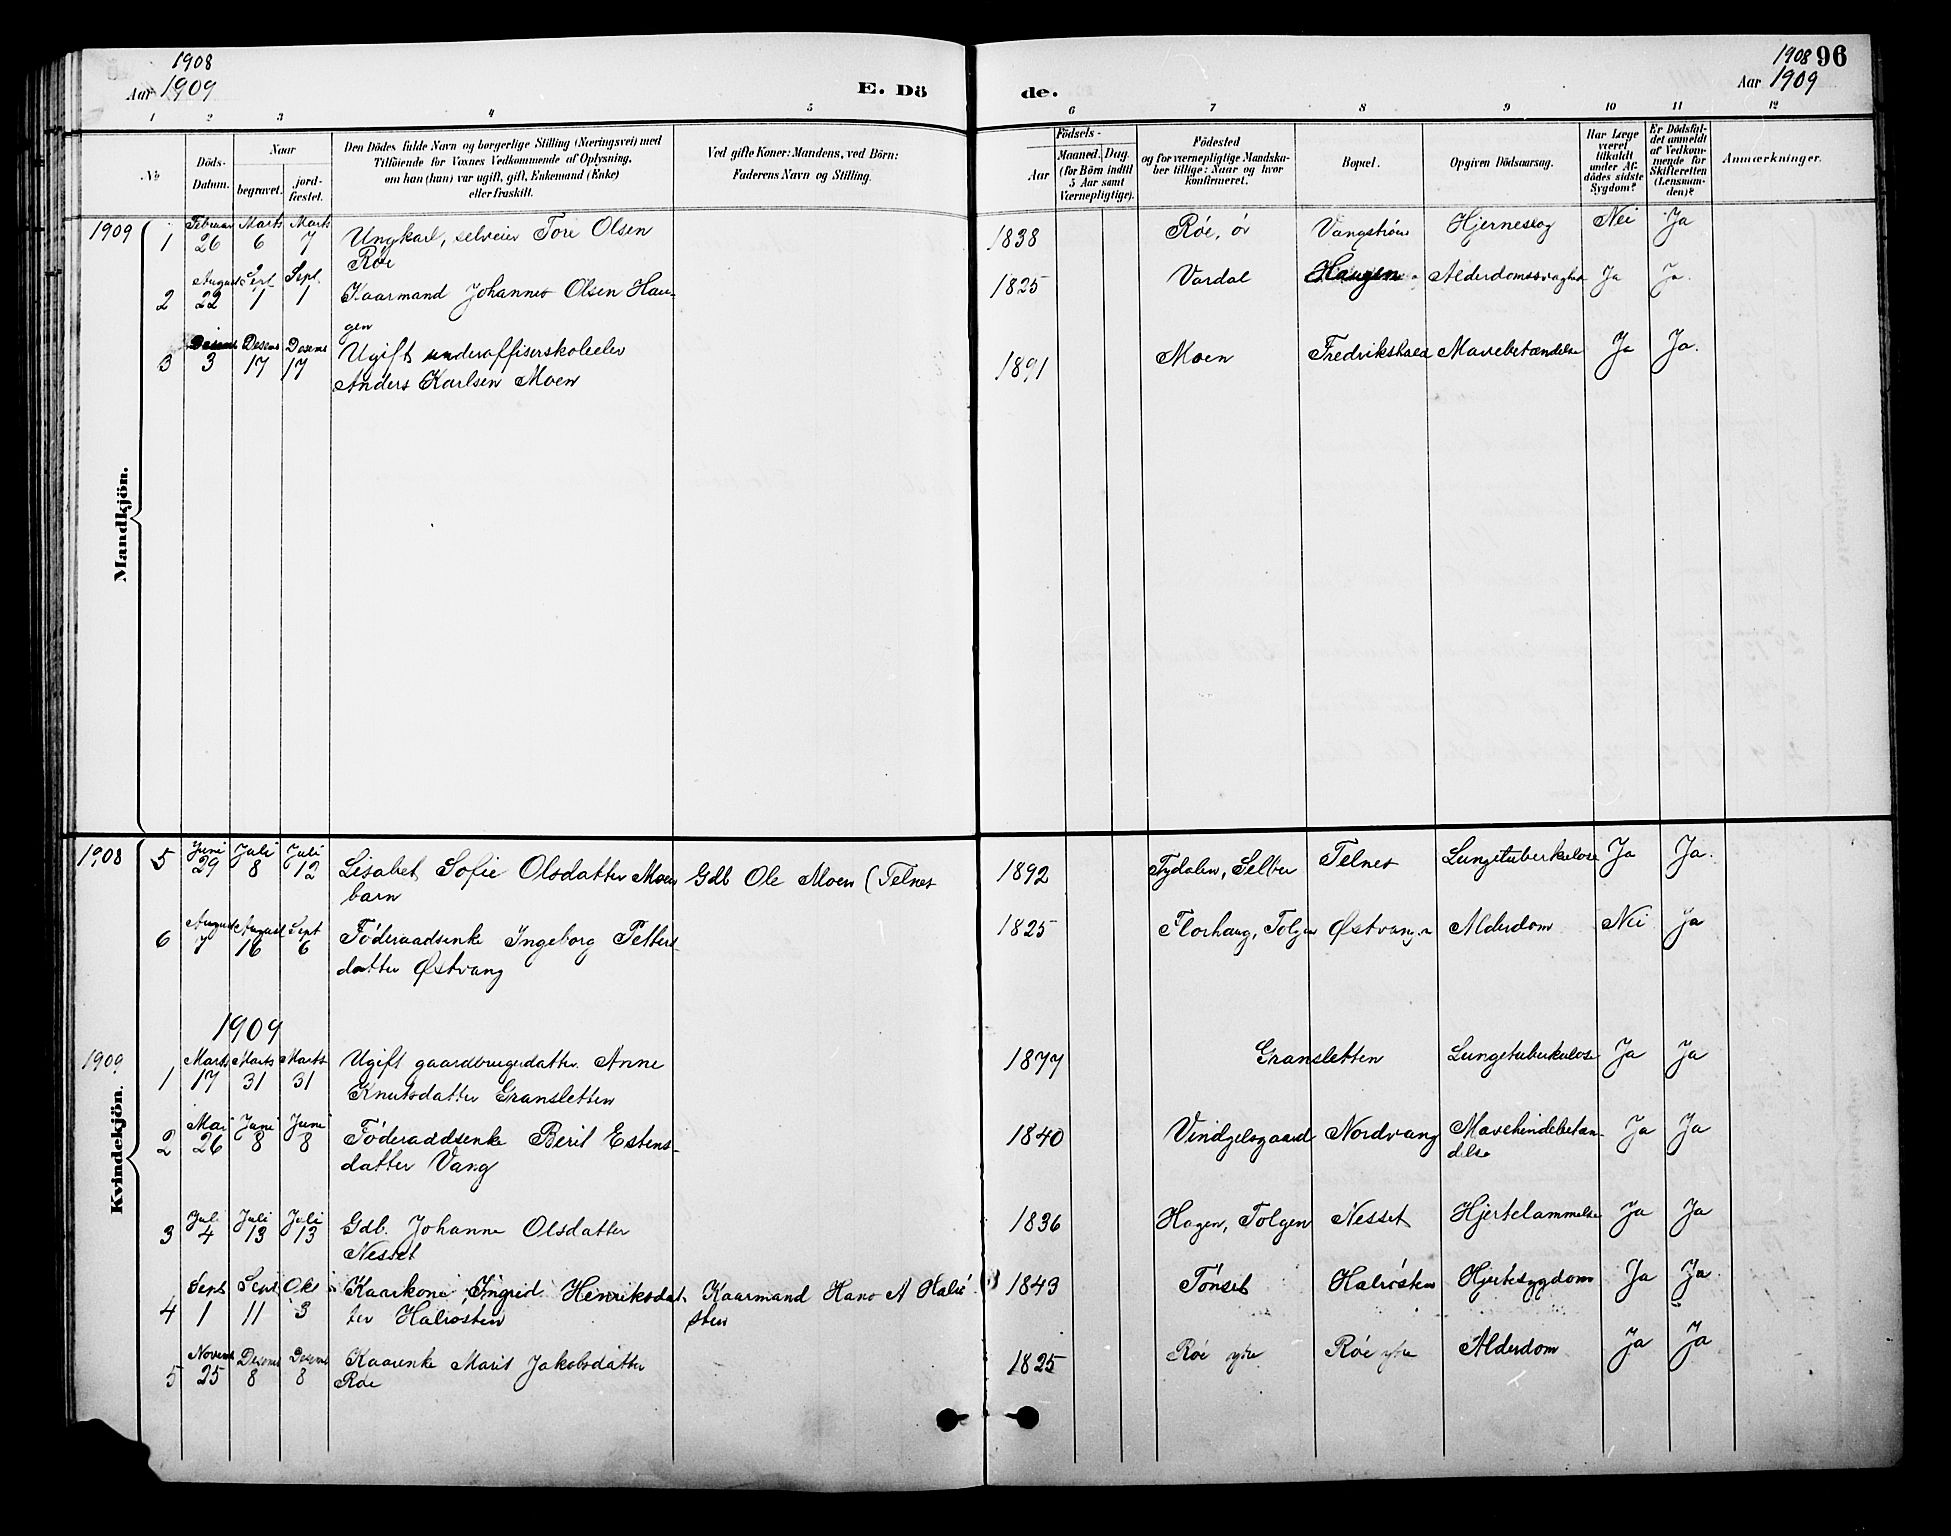 1908
Aar 1909
E. Dö
de.
1908 96
Aar 1909
1 2 3 4 5 6 7 8 9 10 11 12
No
Döds-
Datum.
Naar
begravet.
jord-
fæstet.
Den Dödes fulde Navn og borgerlige Stilling (Næringsvei) med
Tilföiende for Voxnes Vedkommende af Oplysning,
om han (hun) var ugift, gift, Enkemand (Enke)
eller fraskilt.
Ved gifte Koner: Mandens, ved Börn:
Faderens Navn og Stilling.
Födsels-
Aar
Maaned. Dag.
(for Börn indtil
5 Aar samt
Værnepligtige).
Födested
og for værnepligtige Mandska-
ber tillige: Naar og hvor
konfirmeret.
Bopæl.
Opgiven Dödsaarsag.
Har Læge
været
tilkaldt
under Af-
dödes sidste
Sygdom?
Er Dödsfal-
det anmeldt
af Vedkom-
mende for
Skifteretten
(Lensman-
den)?
Anmærkninger.
Mandkjön.
1909 1 Februar 26 Marts 6 Marts 7 Ungkarl, selveier Tore Olsen 1838 Røe, ør Vangstrøen Hjerneslag Nei Ja
Røe
2 August 22 Sept 1 Sept. 1 Kaarmand Johannes Olsen Hau- 1825 Vardal Haugen Alderdomssvaghed Ja Ja.
gen
3 Desem 3 Desem 17 Desem 17 Ugift underoffiserskoleelev 1891 Moen Fredrikshald Mavebetændelse Ja Ja.
Anders Karlsen Moen
Kvindekjön.
1908 5 Juni 29 Juli 8 Juli 12 Lisabet Sofie Olsdatter Moen Gdb Ole Moen (Telnes 1892 Tydalen, Selbu Telnes Lungetuberkulose Ja Ja.
barn
6 August 7 August 16 Sept 6 Føderaadsenke Ingeborg Petters- 1825 Florhaug, Tolgen Østvang Alderdom Nei Ja
datter Østvang
1909
1909 1 Marts 17 Marts 31 Marts 31 Ugift gaardbrugerdatter Anne 1877 Gransletten Lungetuberkulose Ja Ja
Knutsdatter Gransletten
2 Mai 26 Juni 8 Juni 8 Føderaddsenke Beril Estens- 1840 Vindgelsgaard Nordvang Mavehindebetæn- Ja Ja
datter Vang delse
3 Juli 4 Juli 13 Juli 13 Gdb. Johanne Olsdatter 1836 Hagen, Tolgen Nesset Hjertelammelse Ja Ja
Nesset
4 Sept 1 Sept 11 Okt 3 Kaarkone Ingrid Henriksdat- Kaarmand Hans A Halrø 1843 Tönset Halrøsten Hjertesygdom Ja Ja
ter Halrøsten sten
5 Novem 25 Desem 8 Desem 8 Kaarenke Marit Jakobsdatter 1825 Røe ytre Røe ytre Alderdom Ja Ja
Røe